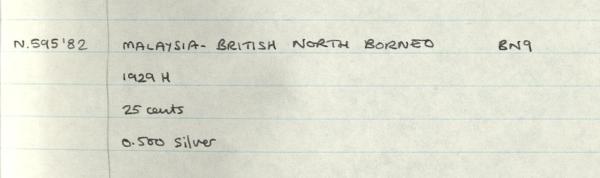 N.595'82 MALAYSIA - BRITISH NORTH BORNEO BN9
1929 H
25 cents
0.500 silver